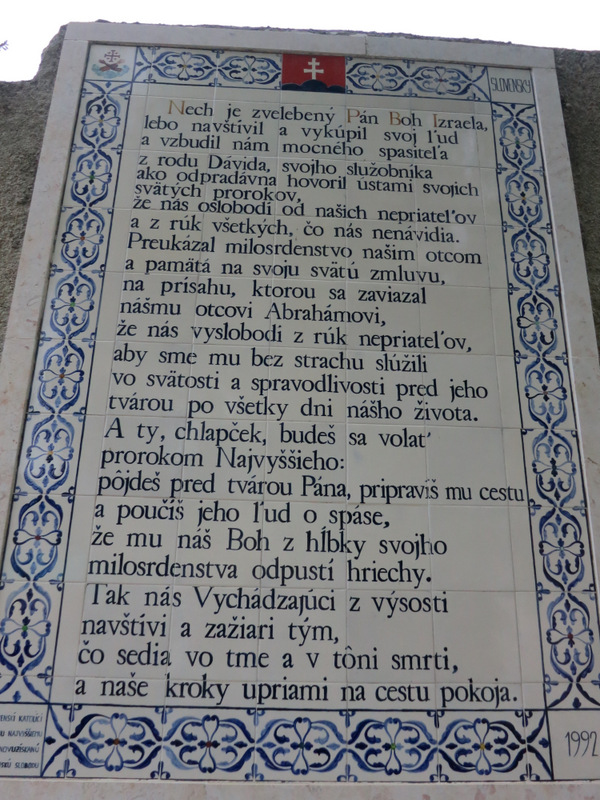 SLOVENSKY
Nech je zvelebený Pán Boh Izraela,
lebo navštívil a vykúpil svoj ľud
a vzbudil nám mocného spasiteľa
z rodu Dávida, svojho služobníka
ako odpradávna hovoril ústami svojich
svätých prorokov,
že nás oslobodí od našich nepriateľov
a z rúk všetkých, čo nás nenávidia.
Preukázal milosrdenstvo našim otcom
a pamätá na svoju svätú zmluvu,
na prísahu, ktorou sa zaviazal
nášmu otcovi Abrahámovi,
že nás vyslobodí z rúk nepriateľov,
aby sme mu bez strachu slúžili
vo svätosti a spravodlivosti pred jeho
tvárou po všetky dni nášho života.
A ty, chlapček, budeš sa volať
prorokom Najvyššieho:
pôjdeš pred tvárou Pána, pripravíš mu cestu
a poučíš jeho ľud o spáse,
že mu náš Boh z hĺbky svojho
milosrdenstva odpustí hriechy.
Tak nás Vychádzajúci z výsosti
navštívi a zažiari tým,
čo sedia vo tme a v tôni smrti,
a naše kroky upriami na cestu pokoja.
1992